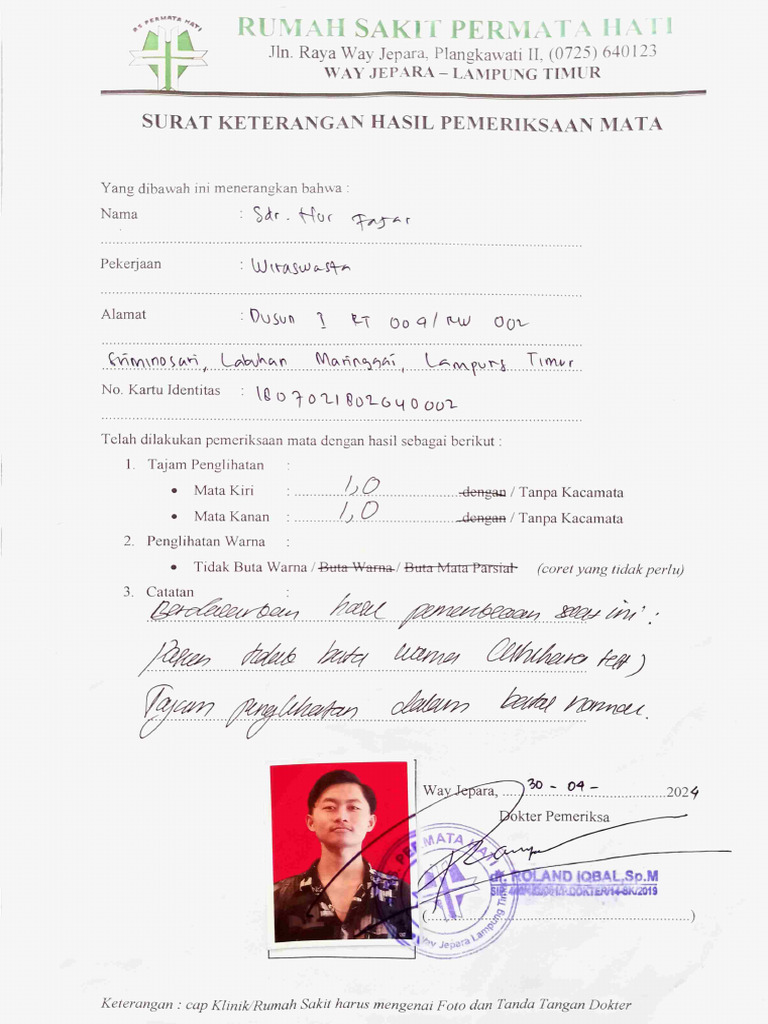 RS PERMATA HATI
RUMAH SAKIT PERMATA HATI
Jln. Raya Way Jepara, Plangkawati II, (0725) 640123
WAY JEPARA – LAMPUNG TIMUR
SURAT KETERANGAN HASIL PEMERIKSAAN MATA
Yang dibawah ini menerangkan bahwa :
Nama : Sdr. Nur Fajar
Pekerjaan : Wiraswasta
Alamat : Dusun I RT 009/RW 002
Sriminosari, Labuhan Maringgai, Lampung Timur
No. Kartu Identitas : 1807021802040002
Telah dilakukan pemeriksaan mata dengan hasil sebagai berikut :
1. Tajam Penglihatan :
• Mata Kiri : 1,0 dengan / Tanpa Kacamata
• Mata Kanan : 1,0 dengan / Tanpa Kacamata
2. Penglihatan Warna :
• Tidak Buta Warna / Buta Warna / Buta Mata Parsial (coret yang tidak perlu)
3. Catatan :
Berdasarkan hasil pemeriksaan saat ini :
Pasien tidak buta warna (Ishihara test)
Tajam penglihatan dalam batas normal.
Way Jepara, 30 - 04 - 2024
Dokter Pemeriksa
PERMATA HATI
dr. ROLAND IQBAL,Sp.M
Way Jepara Lampung Tim
( )
Keterangan : cap Klinik/Rumah Sakit harus mengenai Foto dan Tanda Tangan Dokter